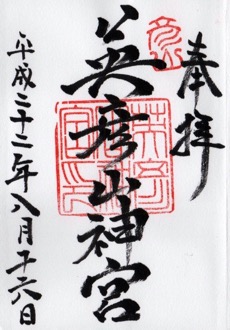 奉拝
英彦山神宮
平成二十二年八月十六日